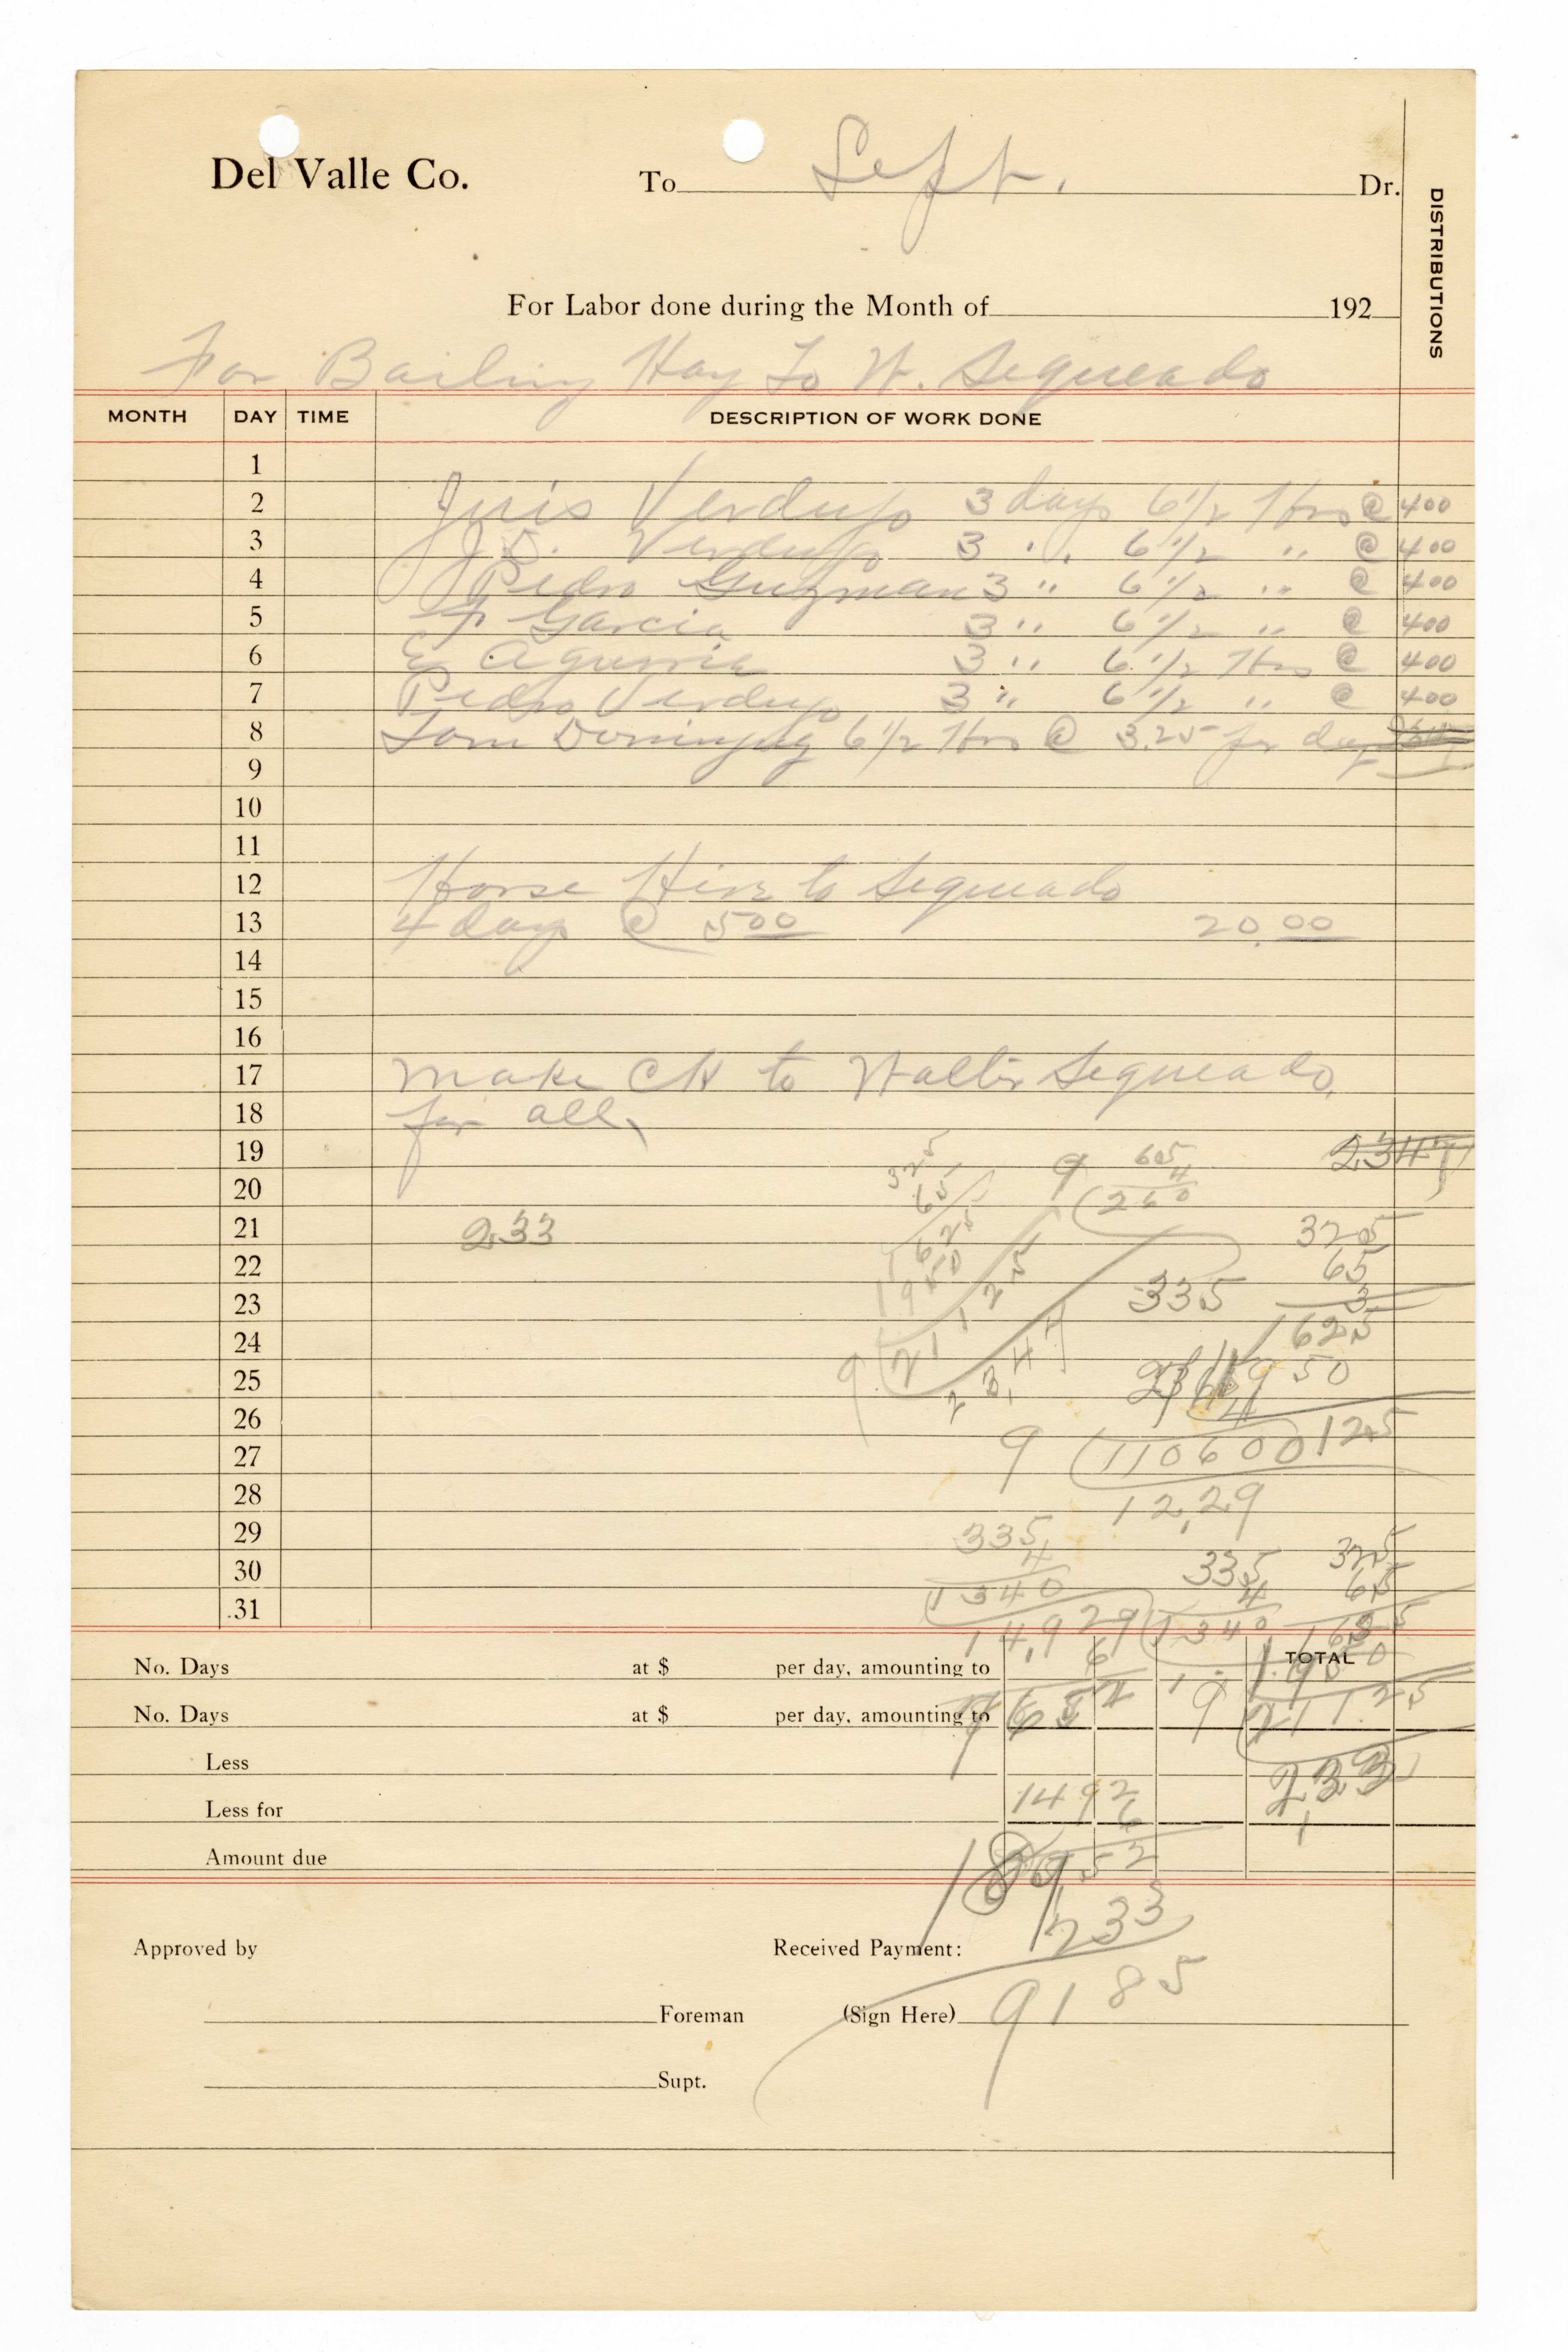 Del Valle Co.
To Sept. Dr.
DISTRIBUTIONS
For Labor done during the Month of 192
For Bailing Hay To W. Segueado
MONTH DAY TIME DESCRIPTION OF WORK DONE
1
2 Juis Verdugo 3 days 6 1/2 Hrs @ 400
3 J.D. Verdugo 3 " 6 1/2 " @ 400
4 Pedro Guzman 3 " 6 1/2 " @ 400
5 Garcia 3 " 6 1/2 " @ 400
6 E 3 " 6 1/2 Hrs @ 400
7 Pedro Verdugo 3 " 6 1/2 " @ 400
8 Tom 6 1/2 Hrs @ 3.25 per day
9
10
11
12 Horse Hire to Segueado
13 4 days @ 500 20.00
14
15
16
17 Make CK to Walter Segueado,
18 for all,
19 325 9 65 2347
20 65 4 260
21 2.33 1625 325
22 1950 65
23 21125 335 3
24 9 2,347 1625
25 1950
26 4
27 9 110600 125
28 12,29
29 335 325
30 4 335 65
31 1340 4
14,929 1340
No. Days at $ per day, amounting to 6 TOTAL
No. Days at $ per day, amounting to 9 211.25
Less 2,33
Less for 1492
6
Amount due 52
233
Approved by Received Payment:
9185
Foreman (Sign Here)
Supt.